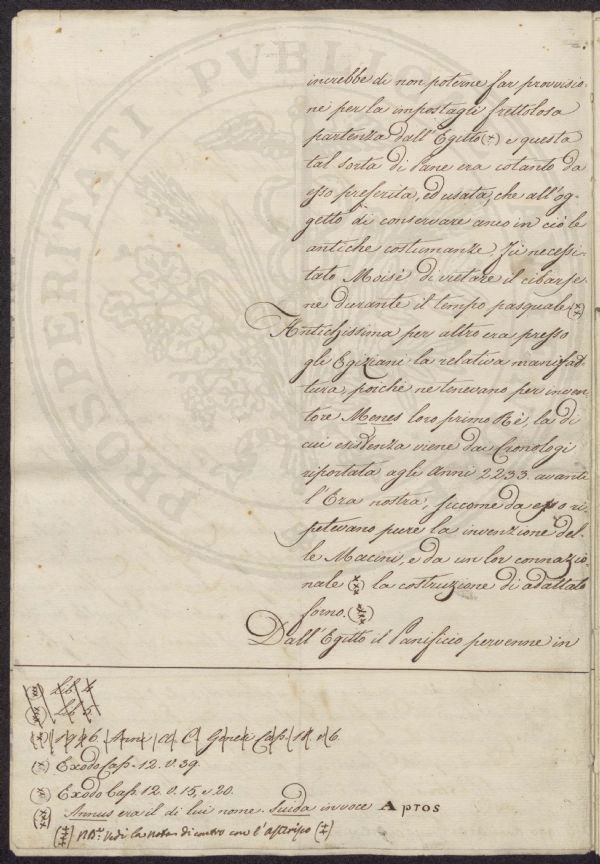 increbbe di non poterne far provvisio-
ne per la impostagli frettolosa
partenza dall'Egitto (x) e questa
tal sorta di Pane era cotanto da
esso preferita, ed usata, che all'og-
getto di conservare anco in ciò le
antiche costumanze, fù necessi-
tato Moisè di vietare il cibarse-
ne durante il tempo pasquale (xx)
Antichissima per altro era presso
gli Egiziani la relativa manifat-
tura, poichè ne tenevano per inven-
tore Menes loro primo Rè, la di
cui esistenza viene dai Cronologi
riportata agli Anni 2233. avanti
l'Era nostra, siccome da esso ri-
petevano pure la invenzione del-
le Macini, e da un lor connazio-
nale (xxx) la costruzione di adattato
forno. (xxxx)
Dall'Egitto il Panificio pervenne in
Lib. 4
Lib. 5
1996 Anni A. C. Genesi Cap. 18 v. 6.
(x) Esodo Cap. 12. v. 39.
(xx) Esodo Cap. 12. v. 15, e 20.
(xxx) Annus era il di lui nome. Suida in voce Αρτος
NB. Vedi la nota di contro con l'asterisco (x)
PROSPERITATI PVBLIC